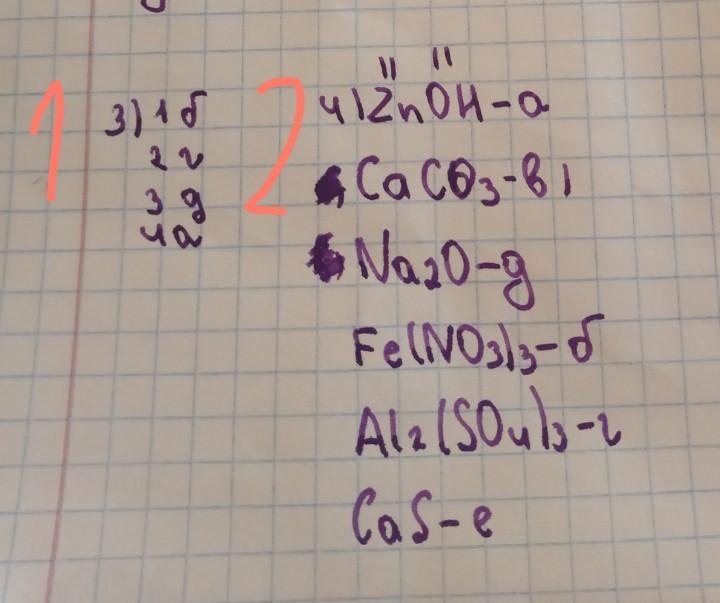 1
3) 1 б
2 г
3 д
4 а
2
4) ZnOH - а
II II
CaCO3 - в)
Na2O - д
Fe(NO3)3 - б
Al2(SO4)3 - г
CaS - е